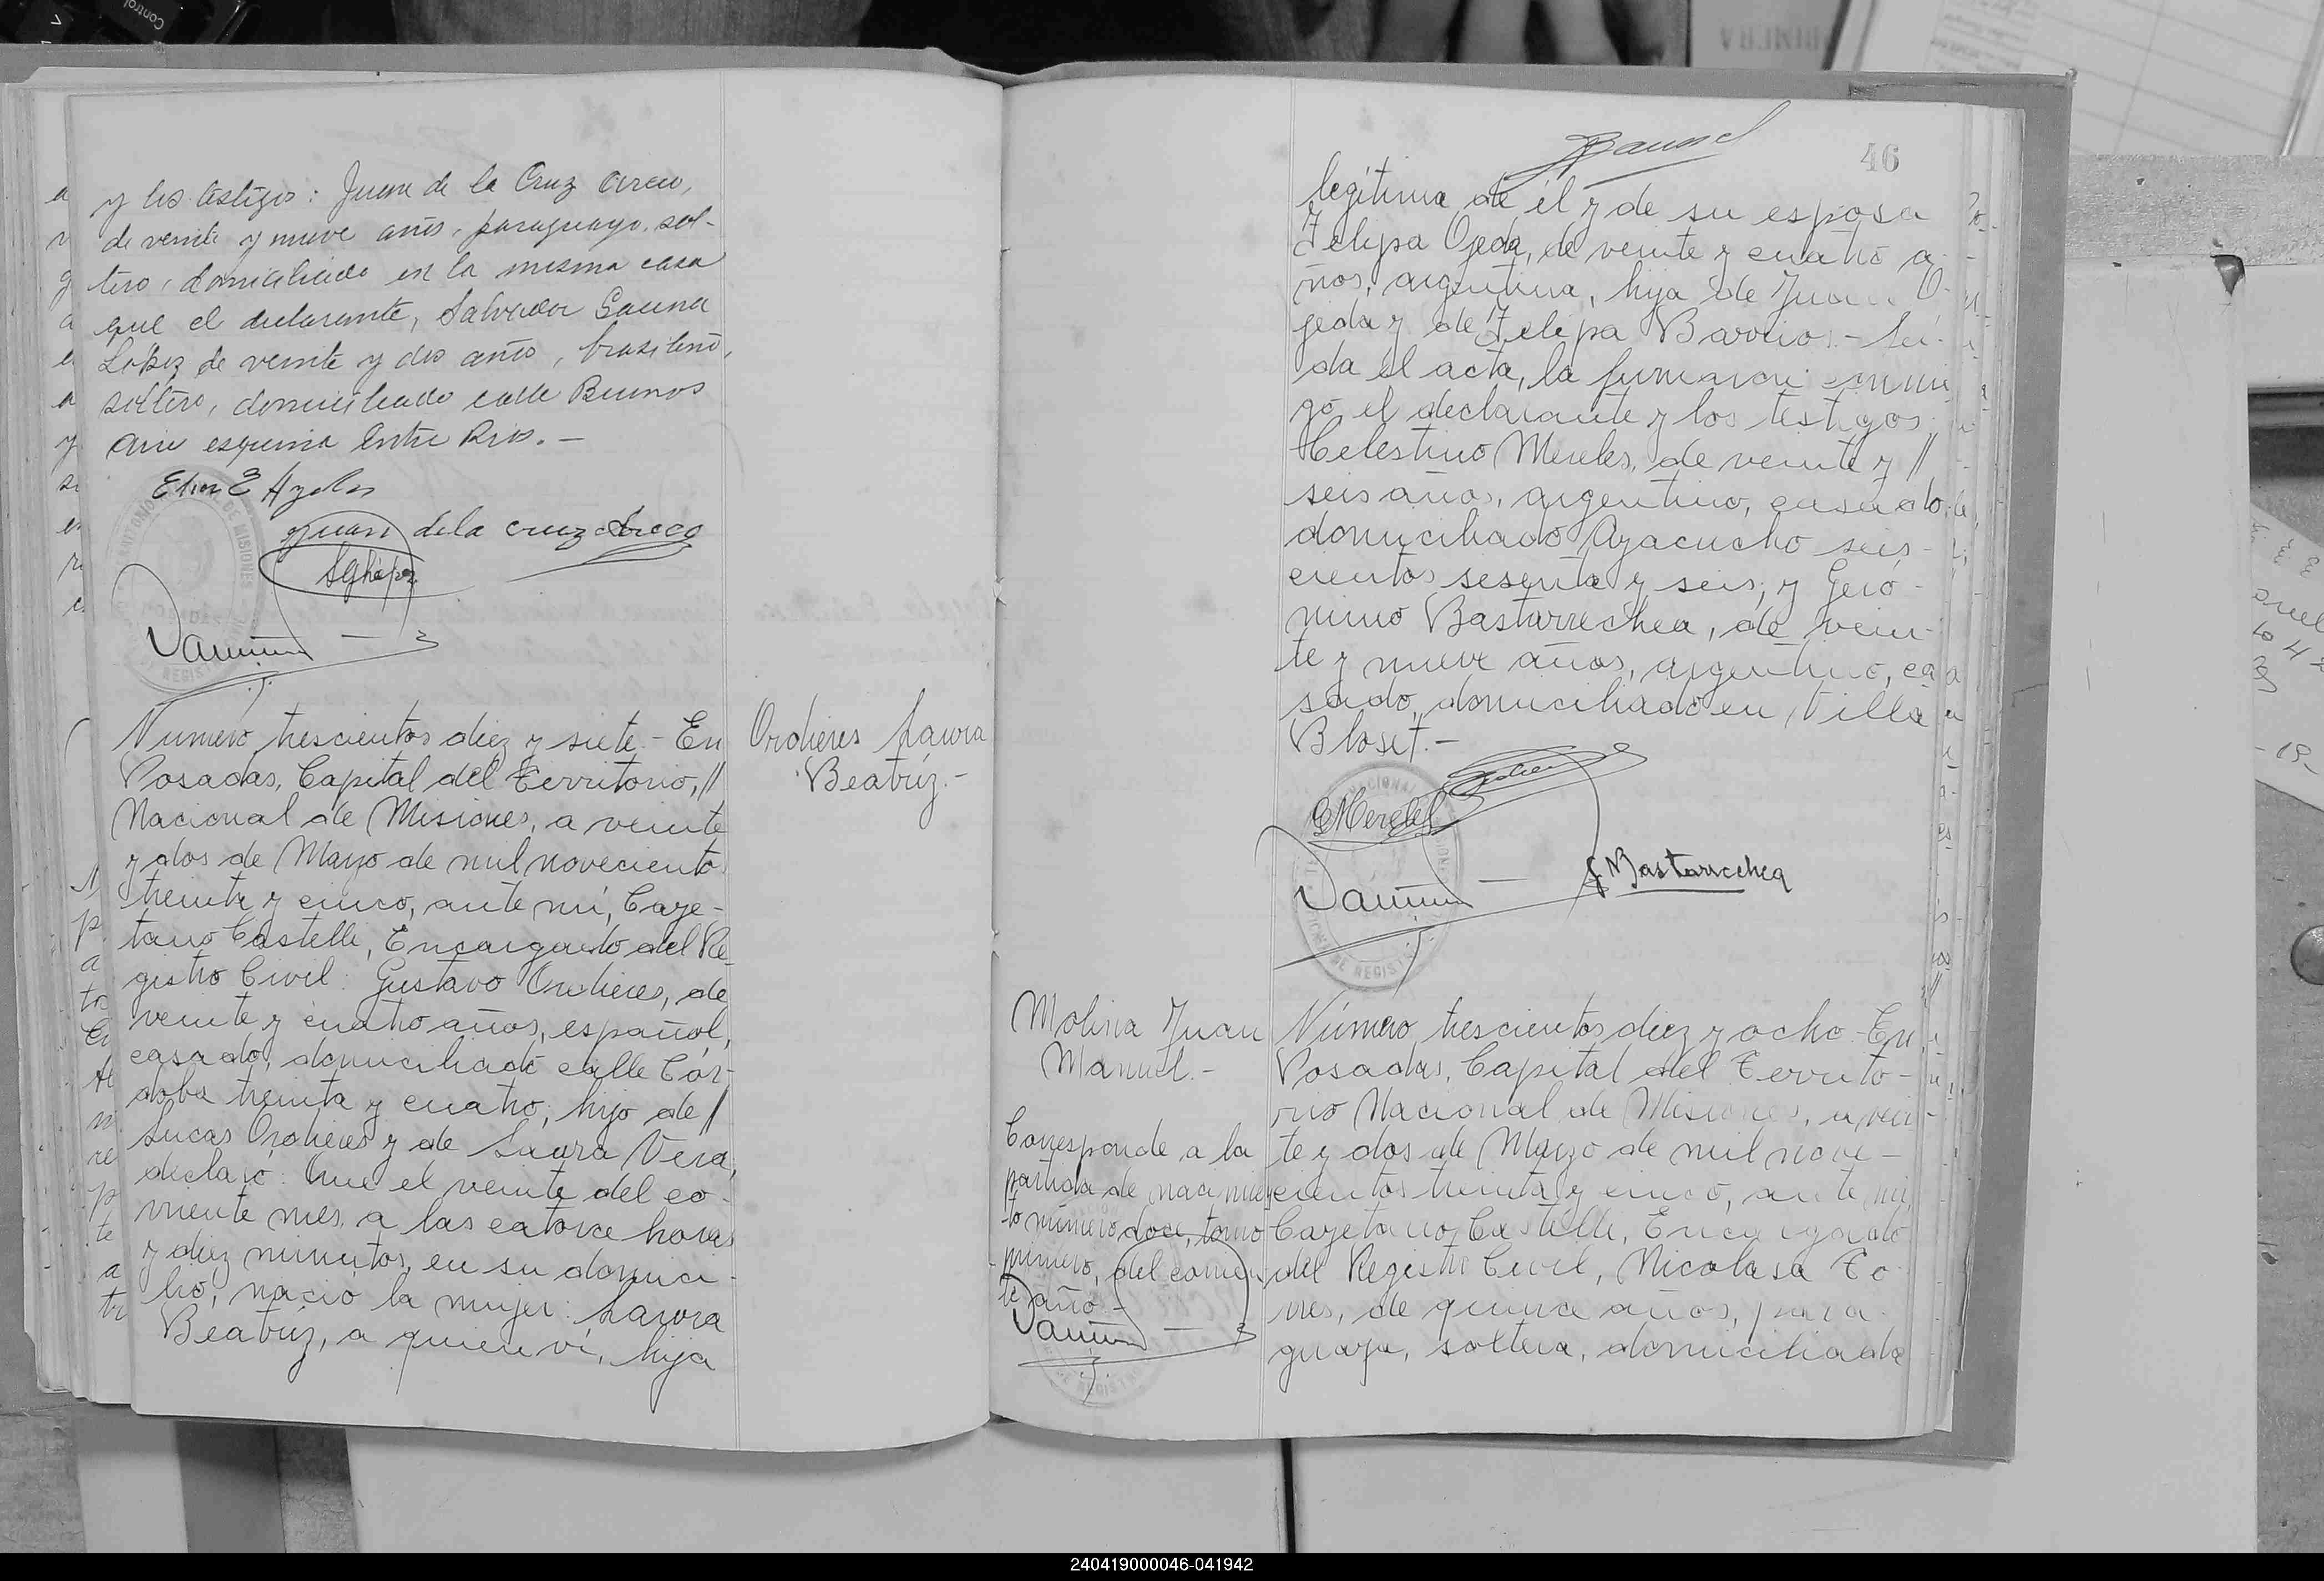 y los testigos: Juan de la Cruz Arcu,
de veinte y nueve años, paraguayo, sol-
tero, domiciliado en la misma casa
que el declarante, Salvador Gauna
López de veinte y dos años, brasileño,
soltero, domiciliado calle Buenos
Aires esquina Entre Rios.-
Juan de la cruz
Número trescientos diez y siete - En
Posadas, Capital del Territorio, //
Nacional de Misiones, a veinte
y dos de Mayo de mil novecientos
treinta y cinco, ante mí, Caye-
tano Castelli, Encargado del Re-
gistro Civil: Gustavo Ordieres, de
veinte y cuatro años, español,
casado, domiciliado calle Cór-
doba treinta y cuatro, hijo de //
Lucas Ordieres y de Laura Vera,
declaró: Que el veinte del co-
rriente mes, a las catorce horas
y diez minutos, en su domici-
lio, nació la mujer: Laura
Beatríz, a quien ví, hija
Ordieres Laura
Beatríz.-
46
legítima de él y de su esposa
Felipa Ojeda, de veinte y cuatro a-
ños, argentina, hija de Juan O-
jeda y de Felipa Barrios.- Leí-
da el acta, la firmaron conmi
go, el declarante y los testigos:
Celestino Mereles, de veinte y //
seis años, argentino, casado,
domiciliado Ayacucho seis-
cientos sesenta y seis; y Geró-
nimo Bastarrechea, de vein-
te y nueve años, argentino, ca
sado, domiciliado en Villa
Bloset.-
CMereles
G Bastarrechea
Molina Juan
Manuel.-
Corresponde a la
partida de nacimien
to número doce, tomo
primero, del corrien
te año.-
Número trescientos diez y ocho - En
Posadas, Capital del Territo-
rio Nacional de Misiones, a vein
te y dos de Mayo de mil nove-
cientos treinta y cinco, ante mí,
Cayetano Castelli, Encargado
del Registro Civil, Nicolasa To-
rres, de quince años, para-
guaya, soltera, domiciliada
240419000046-041942